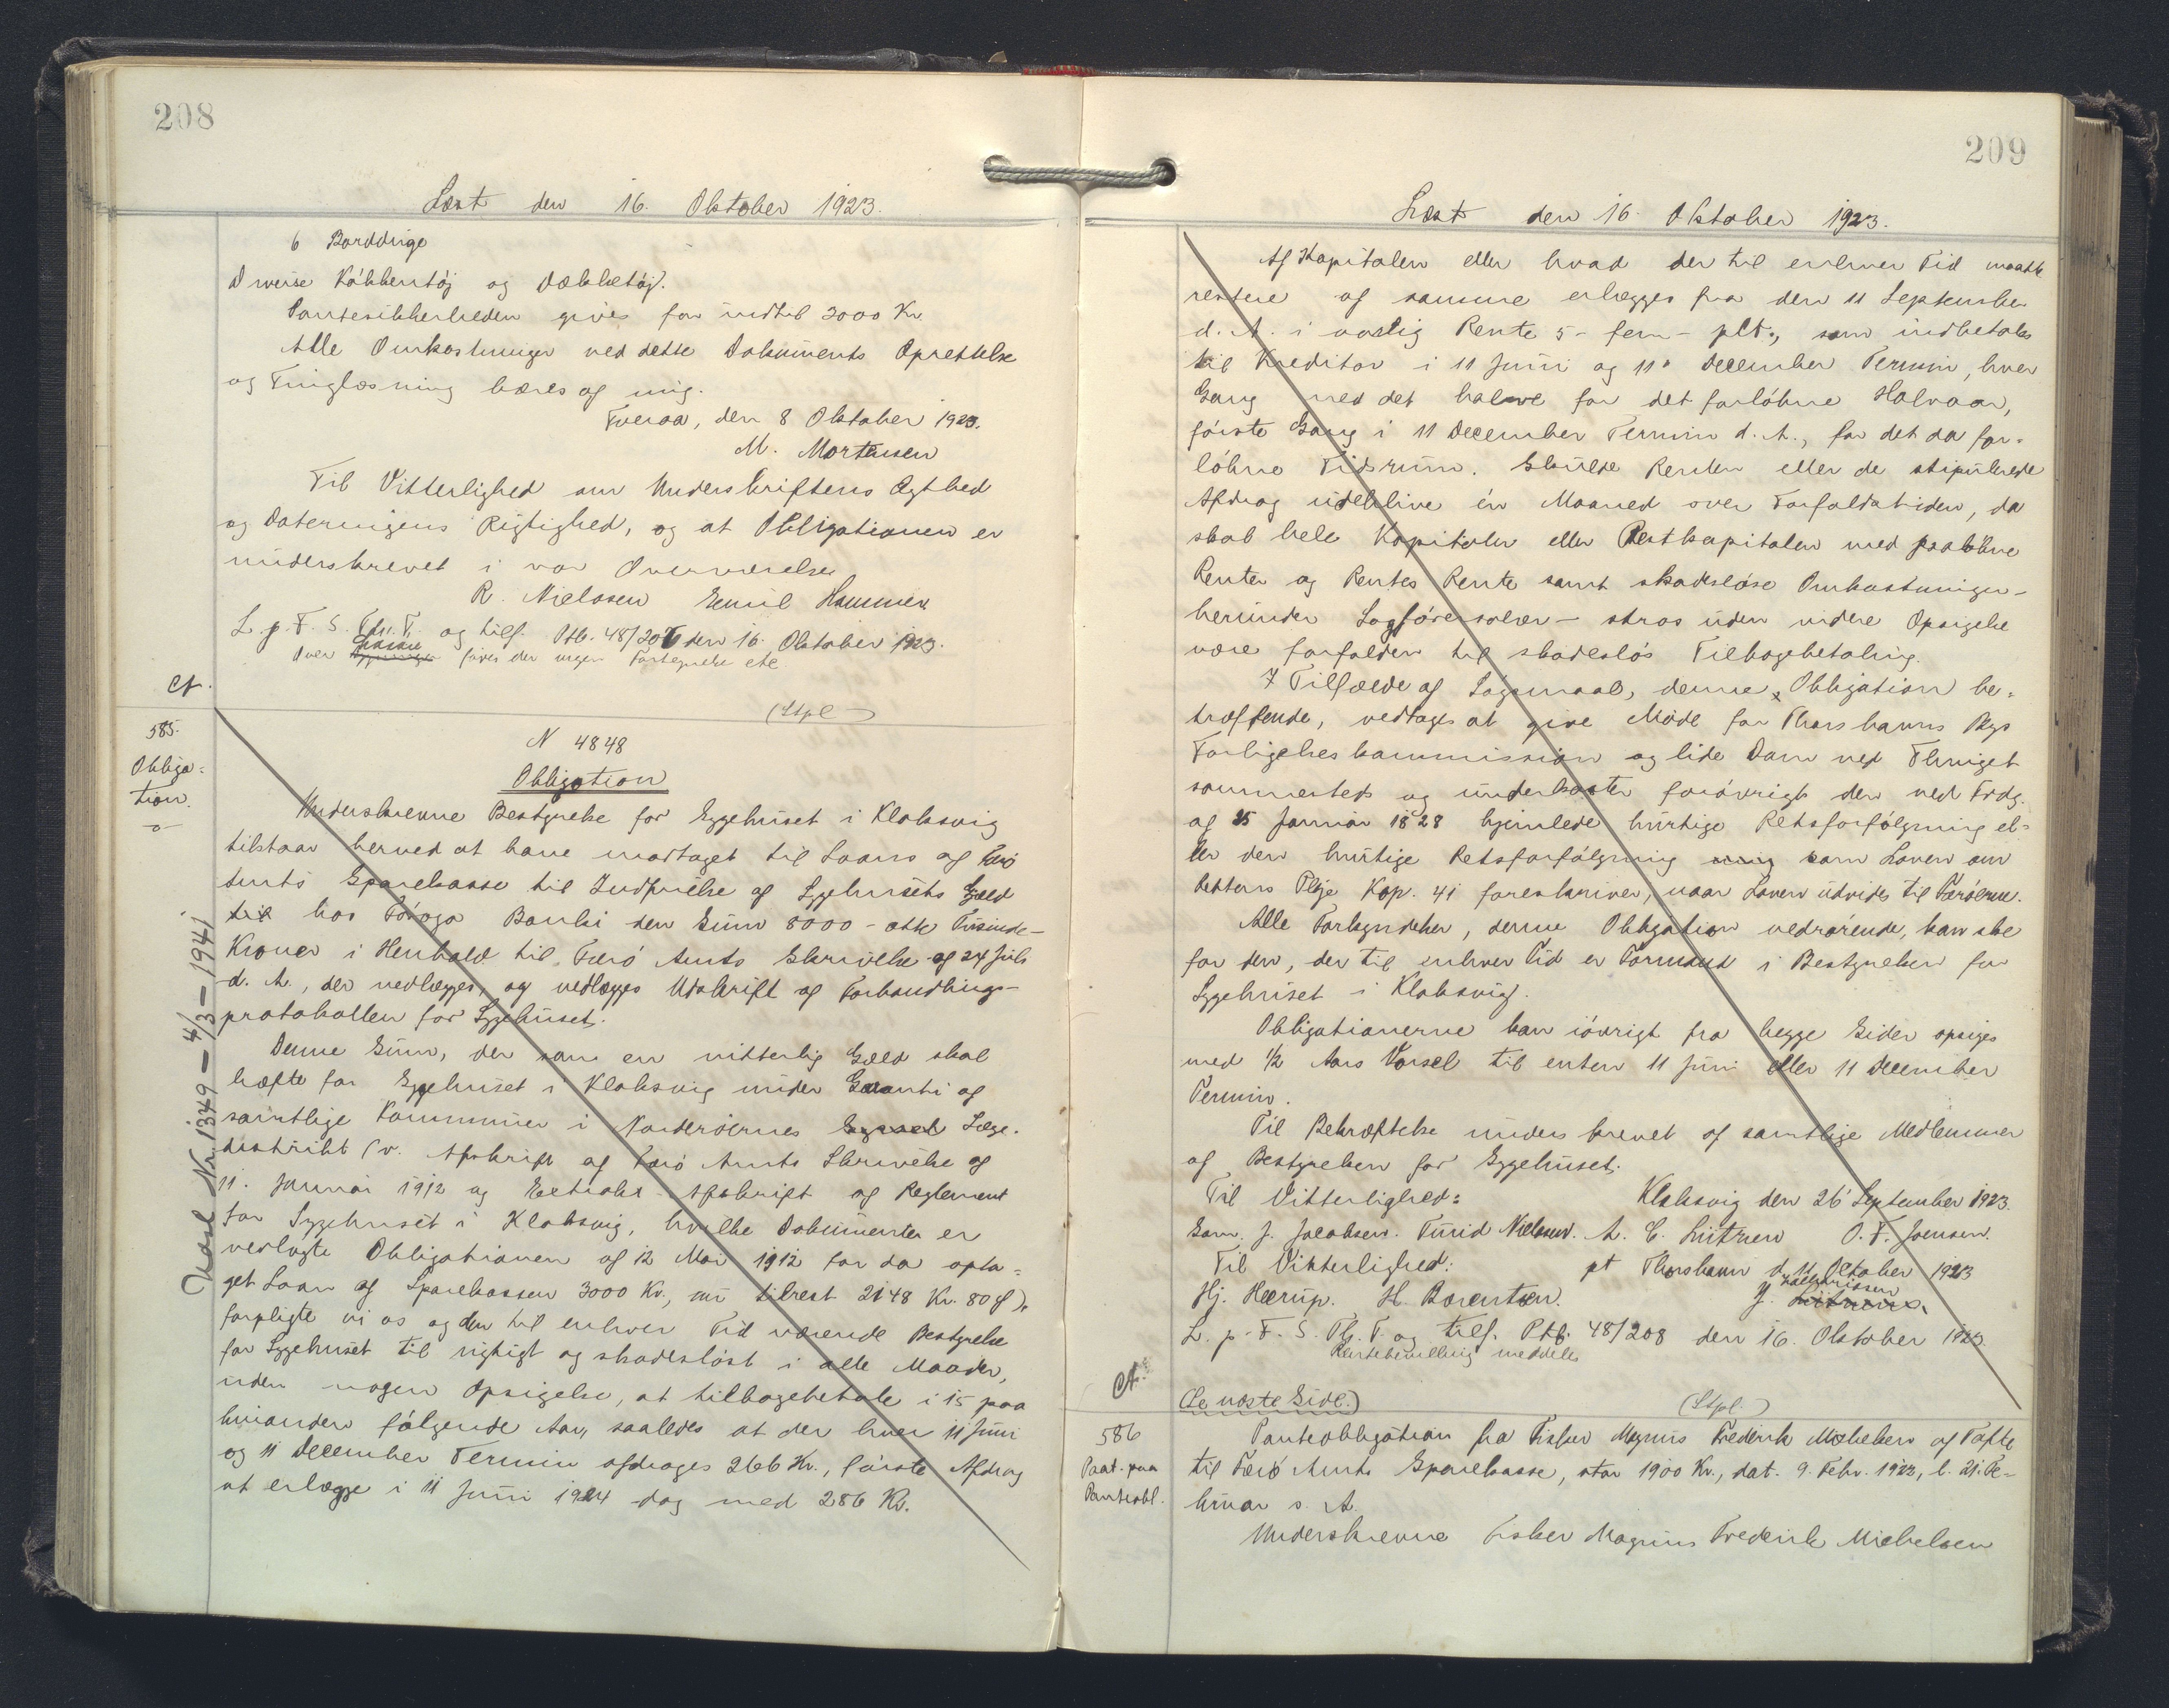 208
Læst den 16. Oktober 1923.
6 Bordduge
Diverse Køkkentøj og Dækketøj.
Pantesikkerheden gives for indtil 2000 Kr.
Alle Omkostninger ved dette Dokuments Oprettelse
og Tinglæsning bæres af mig.
Tveraa, den 8 Oktober 1923.
M. Mortensen
Til Vitterlighed om Underskriftens Ægthed
og Dateringens Rigtighed, og at Obligationen er
underskrevet i vor Overværelse
R. Nielssen Emil Hammer
L. p. F. S. Thr. T. og tilf. Ptb. 48/207 den 16. Oktober 1923.
Over føres der ingen Fortegnelse etc
Ct.
(Stpl)
585.
Obliga=
tion.
N 4848
Obligation
Underskrevne Bestyrelse for Sygehuset i Klaksvig
tilstaar herved at have modtaget til Laans af Færø
Amts Sparekasse til Indfrielse af Sygehusets Gæld
til hos Føroya Banki den Sum 8000 - otte Tusinde -
Kroner i Henhold til Færø Amts Skrivelse af 24 Juli
d. A., der vedlægges, og vedlægges Udskrift af Forhandlings-
protokollen for Sygehuset.
Denne Sum, der som en vitterlig Gæld skal
hæfte for Sygehuset i Klaksvig under Garanti af
samtlige Kommuner i Norderøernes Syssel Læge-
distrikt (v. Afskrift af Færø Amts Skrivelse af
11. Januar 1912 og Extrakt-Afskrift af Reglement
for Sygehuset i Klaksvig, hvilke Dokumenter er
vedlagte Obligationen af 12 Mai 1912 for da opta=
get Laan af Sparekassen 3000 Kr., nu tilrest 2148 Kr. 80 Ø),
forpligte vi os og den til enhver Tid værende Bestyrelse
for Sygehuset til rigtigt og skadesløst i alle Maader,
uden nogen Opsigelse, at tilbagebetale i 15 paa
hinanden følgende Aar, saaledes at der hver 11 Juni
og 11 December Termin afdrages 266 Kr., første Afdrag
at erlægge i 11 Juni 1924 dog med 286 Kr.
Udsl Nr. 1349 - 4/3 - 1941
209
Læst den 16. Oktober 1923.
Af Kapitalen eller hvad der til enhver Tid maatte
restere af samme erlægges fra den 11 September
d. A. i aarlig Rente 5 - fem - pCt., som indbetales
til Kreditor i 11 Juni og 11 December Termin, hver
Gang med det halve for det forløbne Halvaar,
første Gang i 11 December Termin d. A., for det da for=
løbne Tidsrum. Skulde Renten eller de stipulerede
Afdrag udeblive én Maaned over Forfaldstiden, da
skal hele Kapitalen eller Restkapitalen med paaløbne
Renter og Rentes Rente samt skadesløse Omkostninger -
herunder Sagførersalær - straks uden videre Opsigelse
være forfalden til skadesløs Tilbagebetaling.
I Tilfælde af Søgsmaal, denne Obligation be=
træffende, vedtages at give Møde for Thorshavns Bys
Forligelseskommission og lide Dom ved Thinget
sammesteds og underkaster forøvrigt den ved Frdg.
af 25 Januar 1828 hjemlede hurtige Retsforfølgning el=
ler den hurtige Retsforfølgning som Loven om
Rettens Pleje Kap. 41 foreskriver, naar Loven udvides til Færøerne.
Alle Forkyndelser, denne Obligation vedrørende, kan ske
for den, der til enhver Tid er Formand i Bestyrelsen for
Sygehuset i Klaksvig.
Obligationerne kan iøvrigt fra begge Sider opsiges
med ½ Aars Varsel til enten 11 Juni eller 11 December
Termin.
Til Bekræftelse underskrevet af samtlige Medlemmer
af Bestyrelsen for Sygehuset.
Til Vitterlighed: Klaksvig den 26 September 1923.
Sam. J. Jacobsen. Turid Nielssen. A. C. Lützen O. F. Joensen.
Til Vitterlighed: pt Thorshavn d. 11 Oktober 1923
Hj. Heerup. H. Berentsen. J. Zachariasen
L. p. F. S. Th. T. og tilf. Ptb. 48/208 den 16. Oktober 1923.
Rentebevilling meddeles
Ct.
(Se næste Side.)
(Stpl.)
586
Paat. paa
Panteobl.
Panteobligation fra Fisker Magnus Frederik Michelsen af Tofte
til Færø Amts Sparekasse, stor 1900 Kr., dat. 9. Febr. 1922, l. 21. Fe=
bruar s. A.
Underskrevne Fisker Magnus Frederik Michelsen